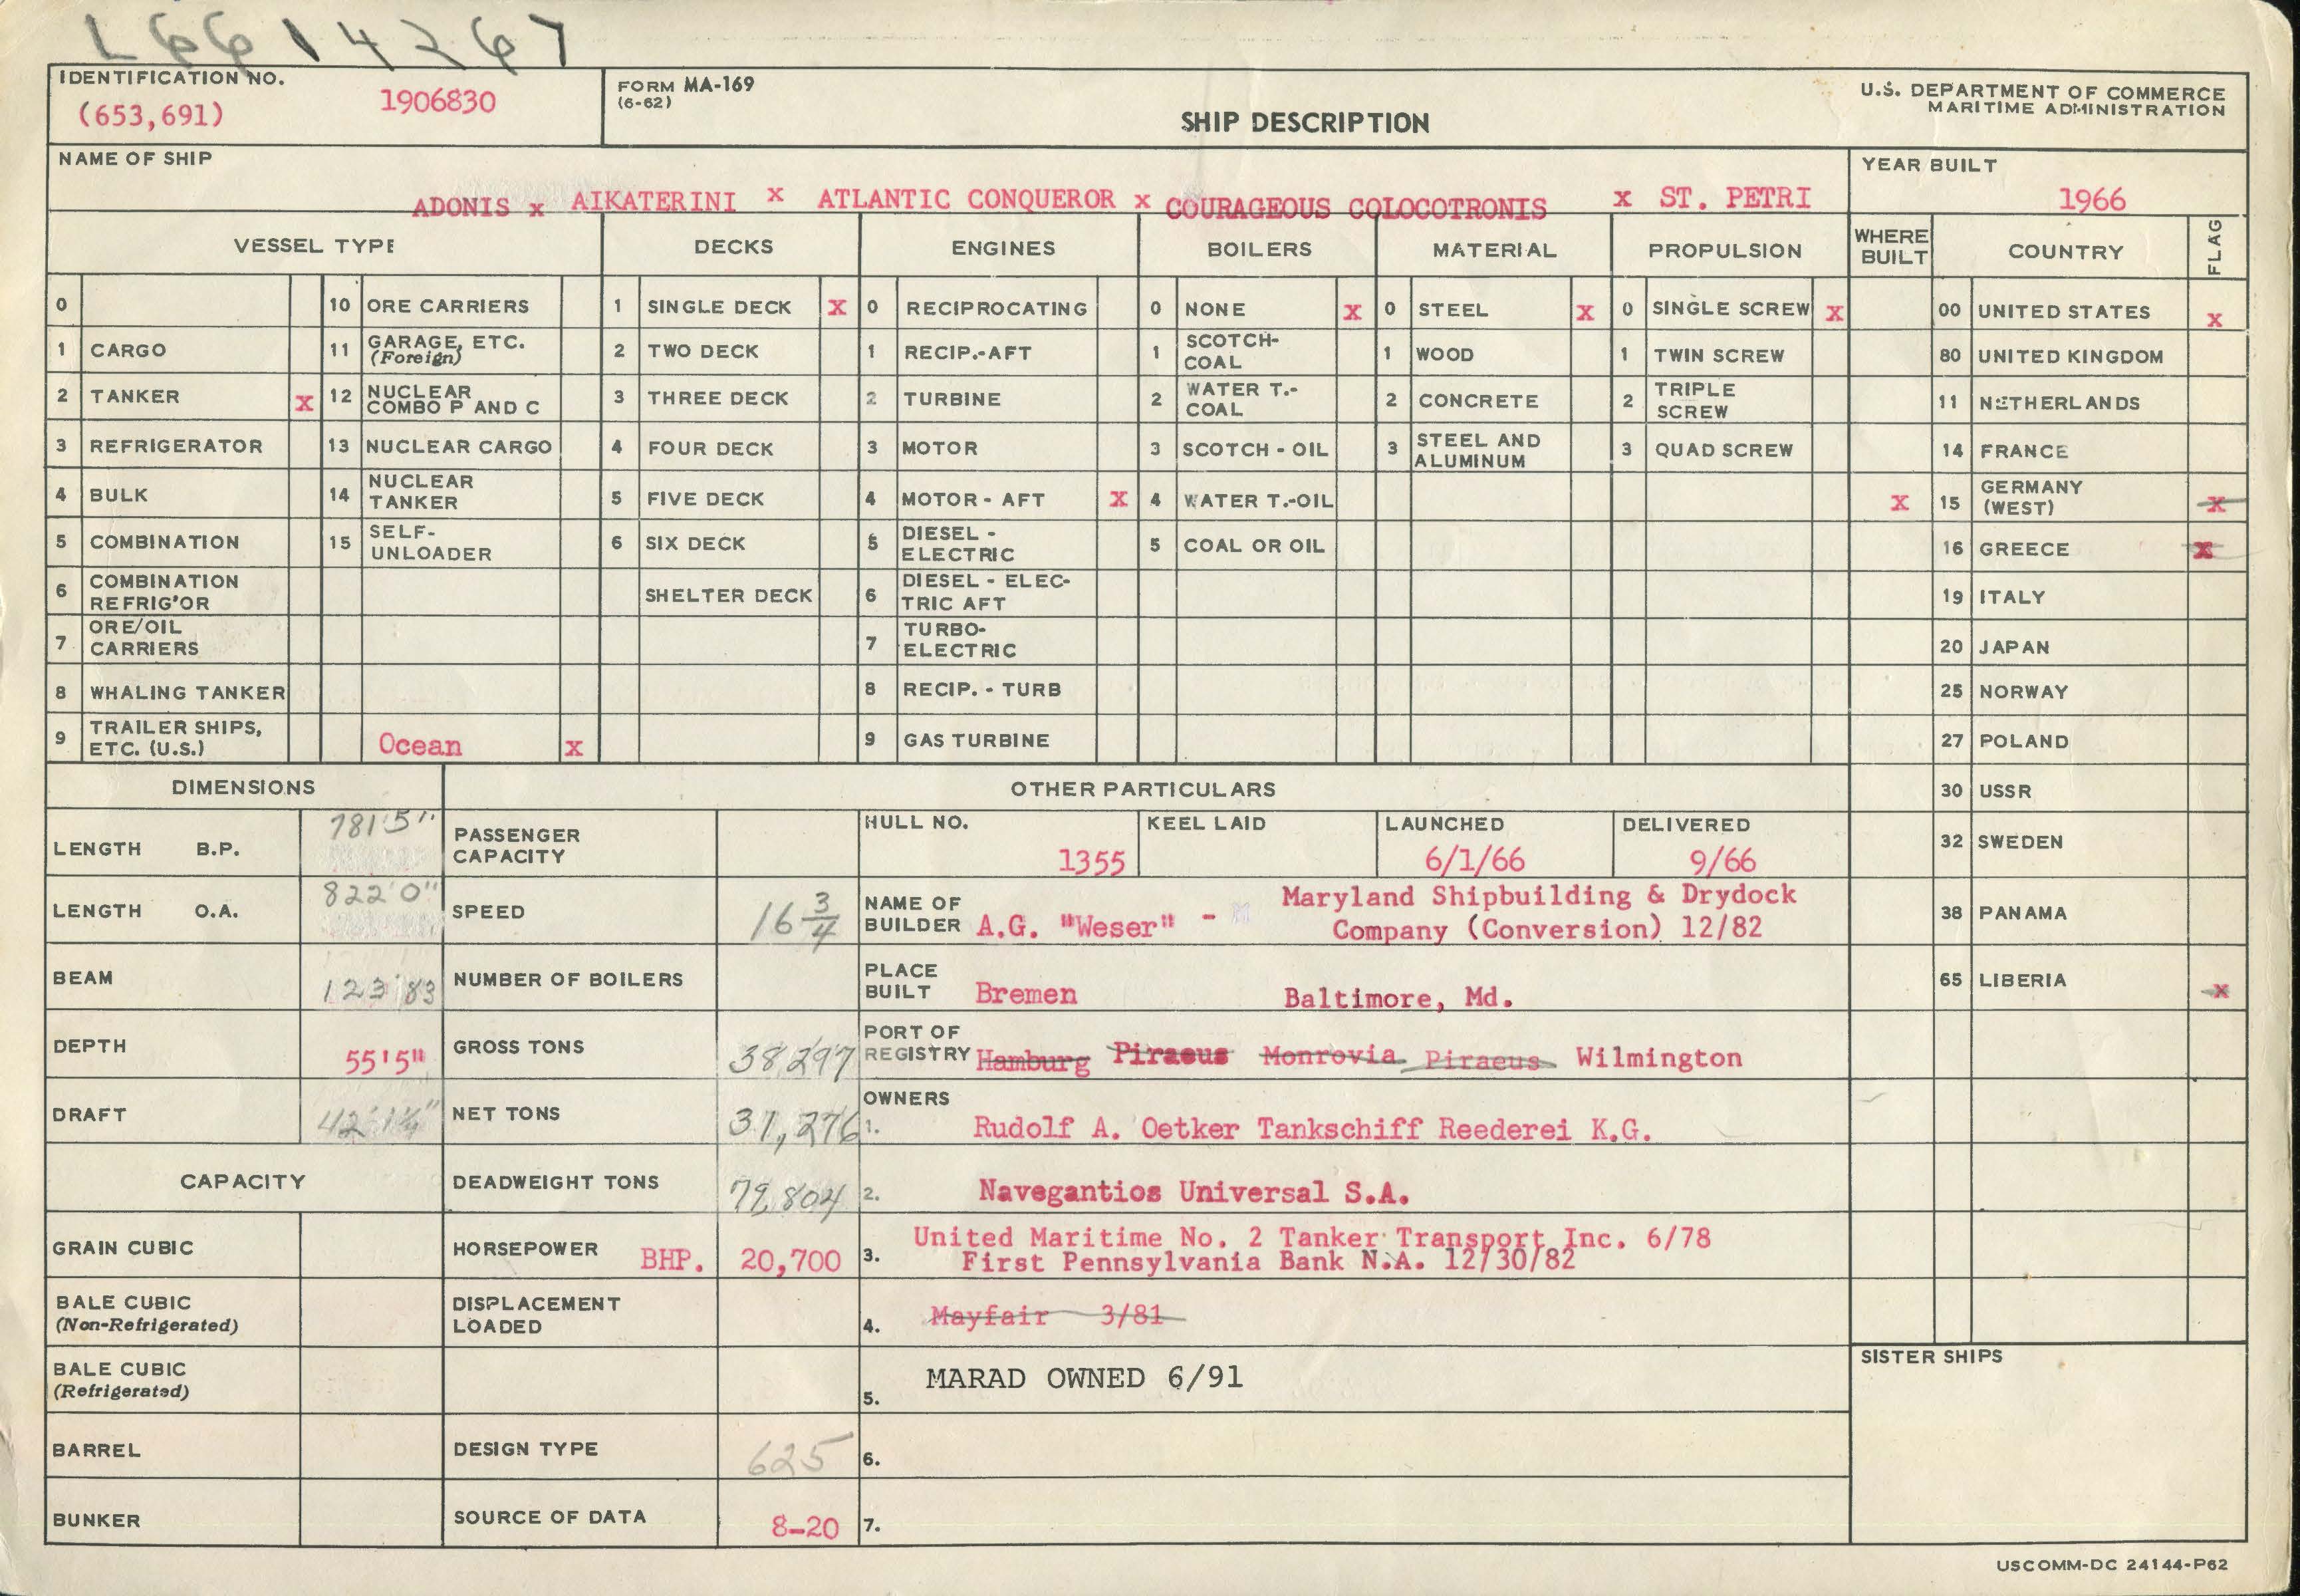 L6614267
IDENTIFICATION NO.
(653,691) 1906830
FORM MA-169
(6-62)
SHIP DESCRIPTION
U.S. DEPARTMENT OF COMMERCE
MARITIME ADMINISTRATION
NAME OF SHIP
ADONIS x AIKATERINI x ATLANTIC CONQUEROR x COURAGEOUS COLOCOTRONIS x ST. PETRI
YEAR BUILT
1966
VESSEL TYPE DECKS ENGINES BOILERS MATERIAL PROPULSION WHERE BUILT COUNTRY FLAG
0 10 ORE CARRIERS 1 SINGLE DECK X 0 RECIPROCATING 0 NONE X 0 STEEL X 0 SINGLE SCREW X 00 UNITED STATES X
1 CARGO 11 GARAGE, ETC. (Foreign) 2 TWO DECK 1 RECIP.-AFT 1 SCOTCH-COAL 1 WOOD 1 TWIN SCREW 80 UNITED KINGDOM
2 TANKER X 12 NUCLEAR COMBO P AND C 3 THREE DECK 2 TURBINE 2 WATER T.-COAL 2 CONCRETE 2 TRIPLE SCREW 11 NETHERLANDS
3 REFRIGERATOR 13 NUCLEAR CARGO 4 FOUR DECK 3 MOTOR 3 SCOTCH - OIL 3 STEEL AND ALUMINUM 3 QUAD SCREW 14 FRANCE
4 BULK 14 NUCLEAR TANKER 5 FIVE DECK 4 MOTOR - AFT X 4 WATER T.-OIL X 15 GERMANY (WEST) X
5 COMBINATION 15 SELF-UNLOADER 6 SIX DECK 5 DIESEL - ELECTRIC 5 COAL OR OIL 16 GREECE X
6 COMBINATION REFRIG'OR SHELTER DECK 6 DIESEL - ELECTRIC AFT 19 ITALY
7 ORE/OIL CARRIERS 7 TURBO-ELECTRIC 20 JAPAN
8 WHALING TANKER 8 RECIP. - TURB 25 NORWAY
9 TRAILER SHIPS, ETC. (U.S.) Ocean X 9 GAS TURBINE 27 POLAND
DIMENSIONS OTHER PARTICULARS 30 USSR
LENGTH B.P. 781'5" PASSENGER CAPACITY HULL NO. 1355 KEEL LAID LAUNCHED 6/1/66 DELIVERED 9/66 32 SWEDEN
LENGTH O.A. 822'0" SPEED 16 3/4 NAME OF BUILDER A.G. "Weser" - Maryland Shipbuilding & Drydock
Company (Conversion) 12/82 38 PANAMA
BEAM 123'83 NUMBER OF BOILERS PLACE BUILT Bremen Baltimore, Md. 65 LIBERIA X
DEPTH 55'5" GROSS TONS 38297 PORT OF REGISTRY Hamburg Piraeus Monrovia Piraeus Wilmington
DRAFT 42'1¼" NET TONS 31,276 OWNERS
1. Rudolf A. Oetker Tankschiff Reederei K.G.
CAPACITY DEADWEIGHT TONS 2. Navegantios Universal S.A.
GRAIN CUBIC HORSEPOWER BHP. 20,700 3. United Maritime No. 2 Tanker Transport Inc. 6/78
First Pennsylvania Bank N.A. 12/30/82
BALE CUBIC (Non-Refrigerated) DISPLACEMENT LOADED 4. Mayfair 3/81
BALE CUBIC (Refrigerated) 5. MARAD OWNED 6/91
SISTER SHIPS
BARREL DESIGN TYPE 625 6.
BUNKER SOURCE OF DATA 8-20 7.
USCOMM-DC 24144-P62